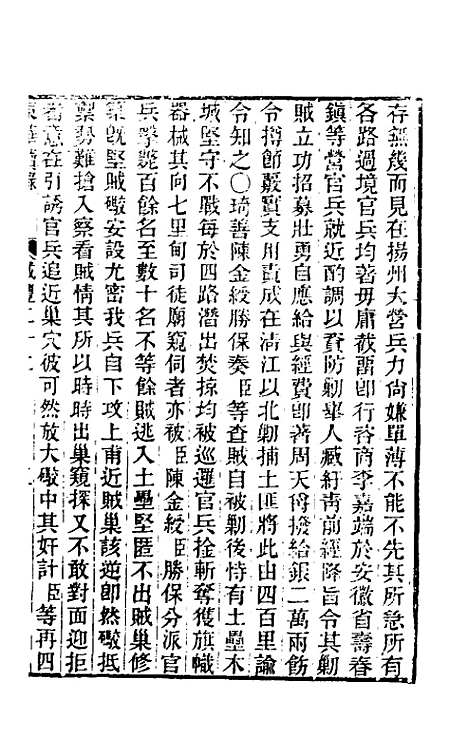 存無幾而見在揚州大營兵力尚嫌單薄不能不先其所急所有
各路過境官兵均著毋庸截留卽行咨商李嘉端於安徽省壽春
鎮等營官兵就近酌調以資防剿舉人臧紆青前經降旨令其剿
賊立功招募壯勇自應給與經費卽著周天爵撥給銀二萬兩飭
令撙節覈實支用責成在清江以北剿捕土匪將此由四百里諭
令知之○琦善陳金綬勝保奏臣等查賊自被剿後恃有土壘木
城堅守不戰每於四路潛出焚掠均被巡邏官兵擒斬奪獲旗幟
器械其向七里甸司徒廟窺伺者亦被臣陳金綬臣勝保分派官
兵擊斃百餘名至數十名不等餘賊逃入土壘堅匿不出賊巢修
築旣堅賊礮安設尤密我兵自下攻上甫近賊巢該逆卽然礮抵
禦勢難搶入察看賊情其所以時時出巢窺探又不敢對面迎拒
者意在引誘官兵追近巢穴彼可然放大礮中其奸計臣等再四
東華續錄 咸豐二十二